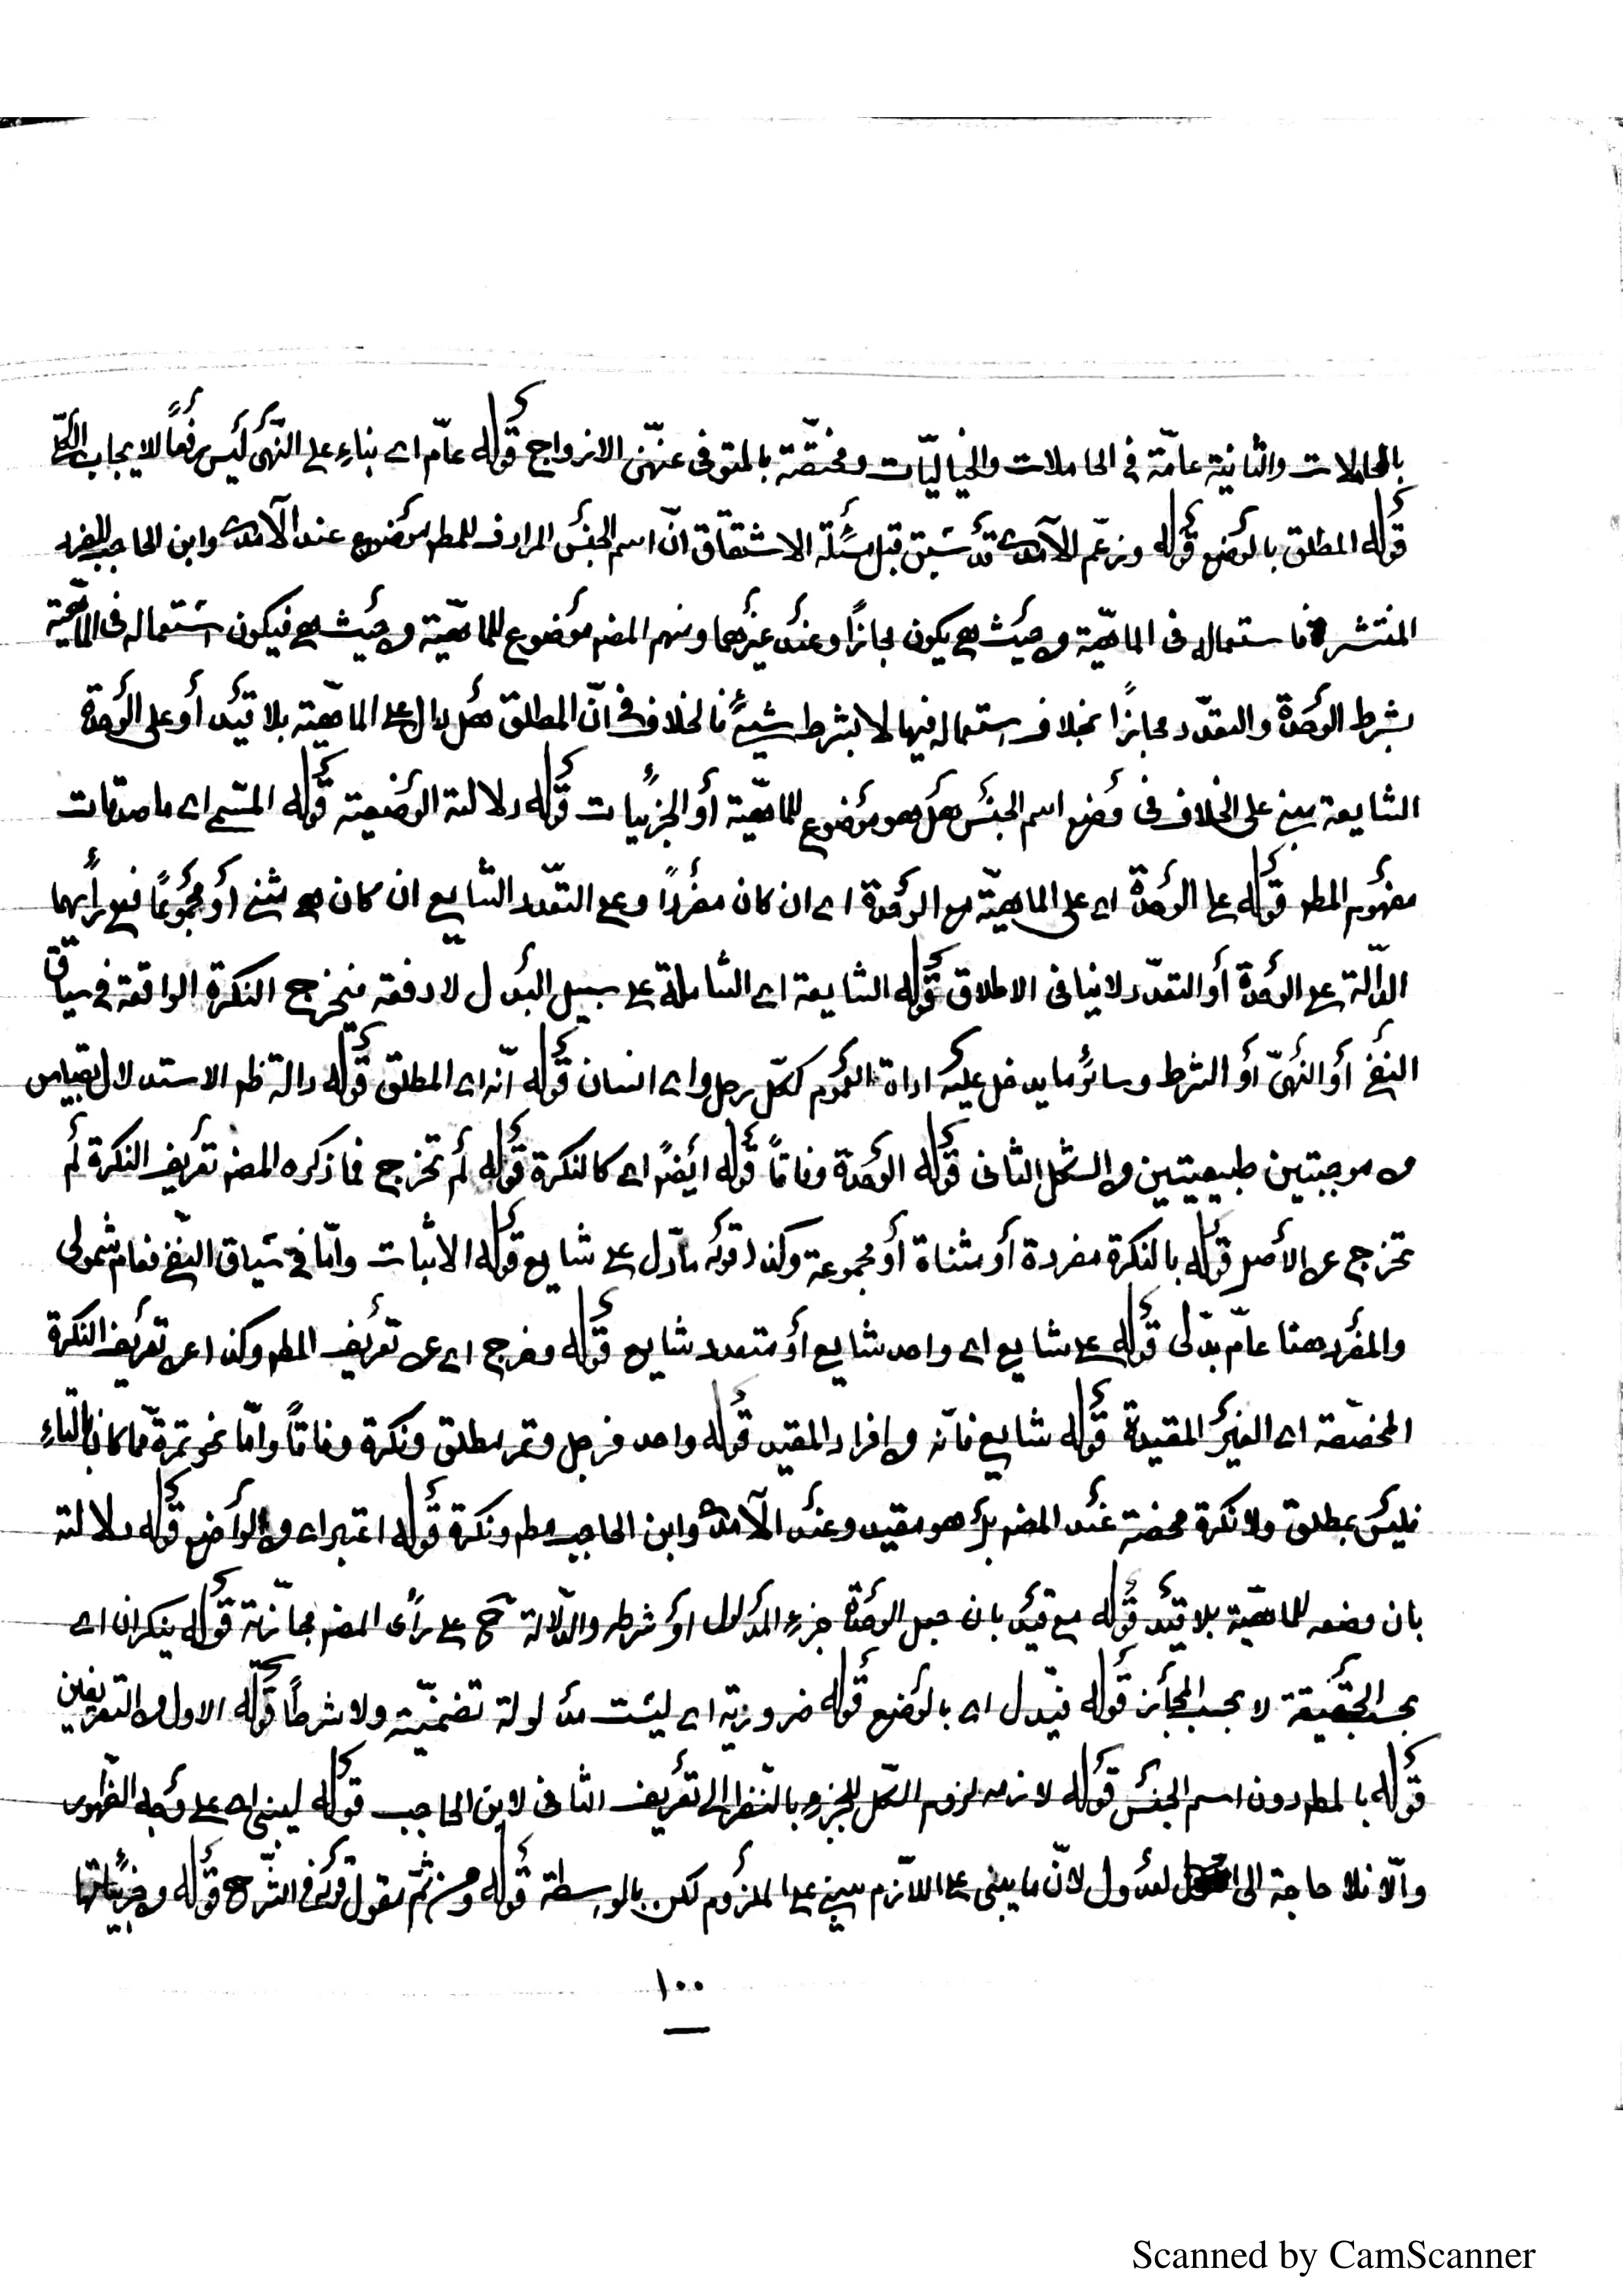 بالحاملات والثانية عامّة في الحاملات والخياليّات ومختصّة بالمتوفى عنهنّ الازواج قوله عامّ اى بناءً على النّهى ليس رفعاً للايجاب الكلّي
قوله المطلق بالوضع قوله وزعم الآمدى قد سبق قبل مسئلة الاشتقاق انّ اسم الجنس المرادف للمطم موضوع عند الآمدى وابن الحاجب للفرد
المنتشر فاستعماله فى الماهيّة من حيث هى يكون مجازاً وعند غيرهما ومنهم المضم موضوع للماهيّة من حيث هى فيكون استعماله فى الماهيّة
بشرط الوحدة والتعدّد مجازاً بخلاف استعماله فيها لا بشرط شيئٍ فالخلاف فى انّ المطلق هل يدال على الماهيّة بلا قيد أو على الوحدة
الشايعة مبنى على الخلاف فى وضع اسم الجنس هل هو موضوع للماهيّة أو الجزئيات قوله دلالتة الوضعيّة قوله المسمى اى ماصدقات
مفهوم المطم قوله على الوحدة اى على الماهيّة مع الوحدة اى ان كان مفرداً وعلى التعّدد الشايع ان كان مثنى أو مجموعاً فعد أيهما
الدّالة على الوحدة أو التعدّد لا ينافى الاطلاق قوله الشايعة اى الشاملة على سبيل البدل لا دفعة فيخرج النكرة الواقعة فى سياق
النفى أو النّهىّ أو الشرط وسائر ما يدخل عليه اداة العموم ككلّ رجل واى انسان قوله انّه اى المطلق قوله دالة ظم الاستدلال بقياس
من موجبتين طبيعيتين من الشكل الثانى قوله الوحدة وفاقاً قوله ايضم اى كالنكرة قوله لم تخرج فما ذكره المضم تعريف النكرة لم
تخرج عن الأصل قوله بالنكرة مفردة أو مثناة أو مجموعة وكذا قوله ما دّل على شايع قوله الاثبات وامّا فى سياق النفى فعام شمولى
والمفرد هنا عامّ بدلى قوله على شايع اى واحد شايع أو متعدد شايع قوله وخرج اى عن تعريف المطم وكذا عن تعريف النكرة
المخصّصة اى الغير المقيدة قوله شايع فانّه من افراد المقيد قوله واحد فرجل وتمر مطلق ونكرة وفاقاً وامّا نحو تمرة ممّا كان بالتاءِ
فليس بمطلق ولا نكرة محضة عند المضم بل هو مقيد وعند الآمدى وابن الحاجب مطم ونكرة قوله اعتبر اى من الواضع قوله دلالته
بان وضعه للماهيّة بلا قيد قوله مع قيد بان جعل الوحدة جزء المدلول او شرطه والدّلالة ح على رأى المضم مجازيّة قوله ينكران اى
بحسب الحقيقة لا بحسب المجاز قوله فيدل اى بالوضع قوله ضرورية اى ليست مدلولة تضمنيّة ولا شرطاً قوله الاول من التعريفين
قوله بالمطم دون اسم الجنس قوله لازمه لزوم الكل للجزء وبالنظر الى تعريف الثانى لابن الحاجب قوله ليبنى اى على وجه الظهور
والّا فلا حاجة الى لعدول لانّ ما يبنى على اللازم مبنى على الملزوم لكن بالواسطة قوله ومن ثمّ مقول قوله فى الشرح قوله من جزئياتها
١٠٠
Scanned by CamScanner